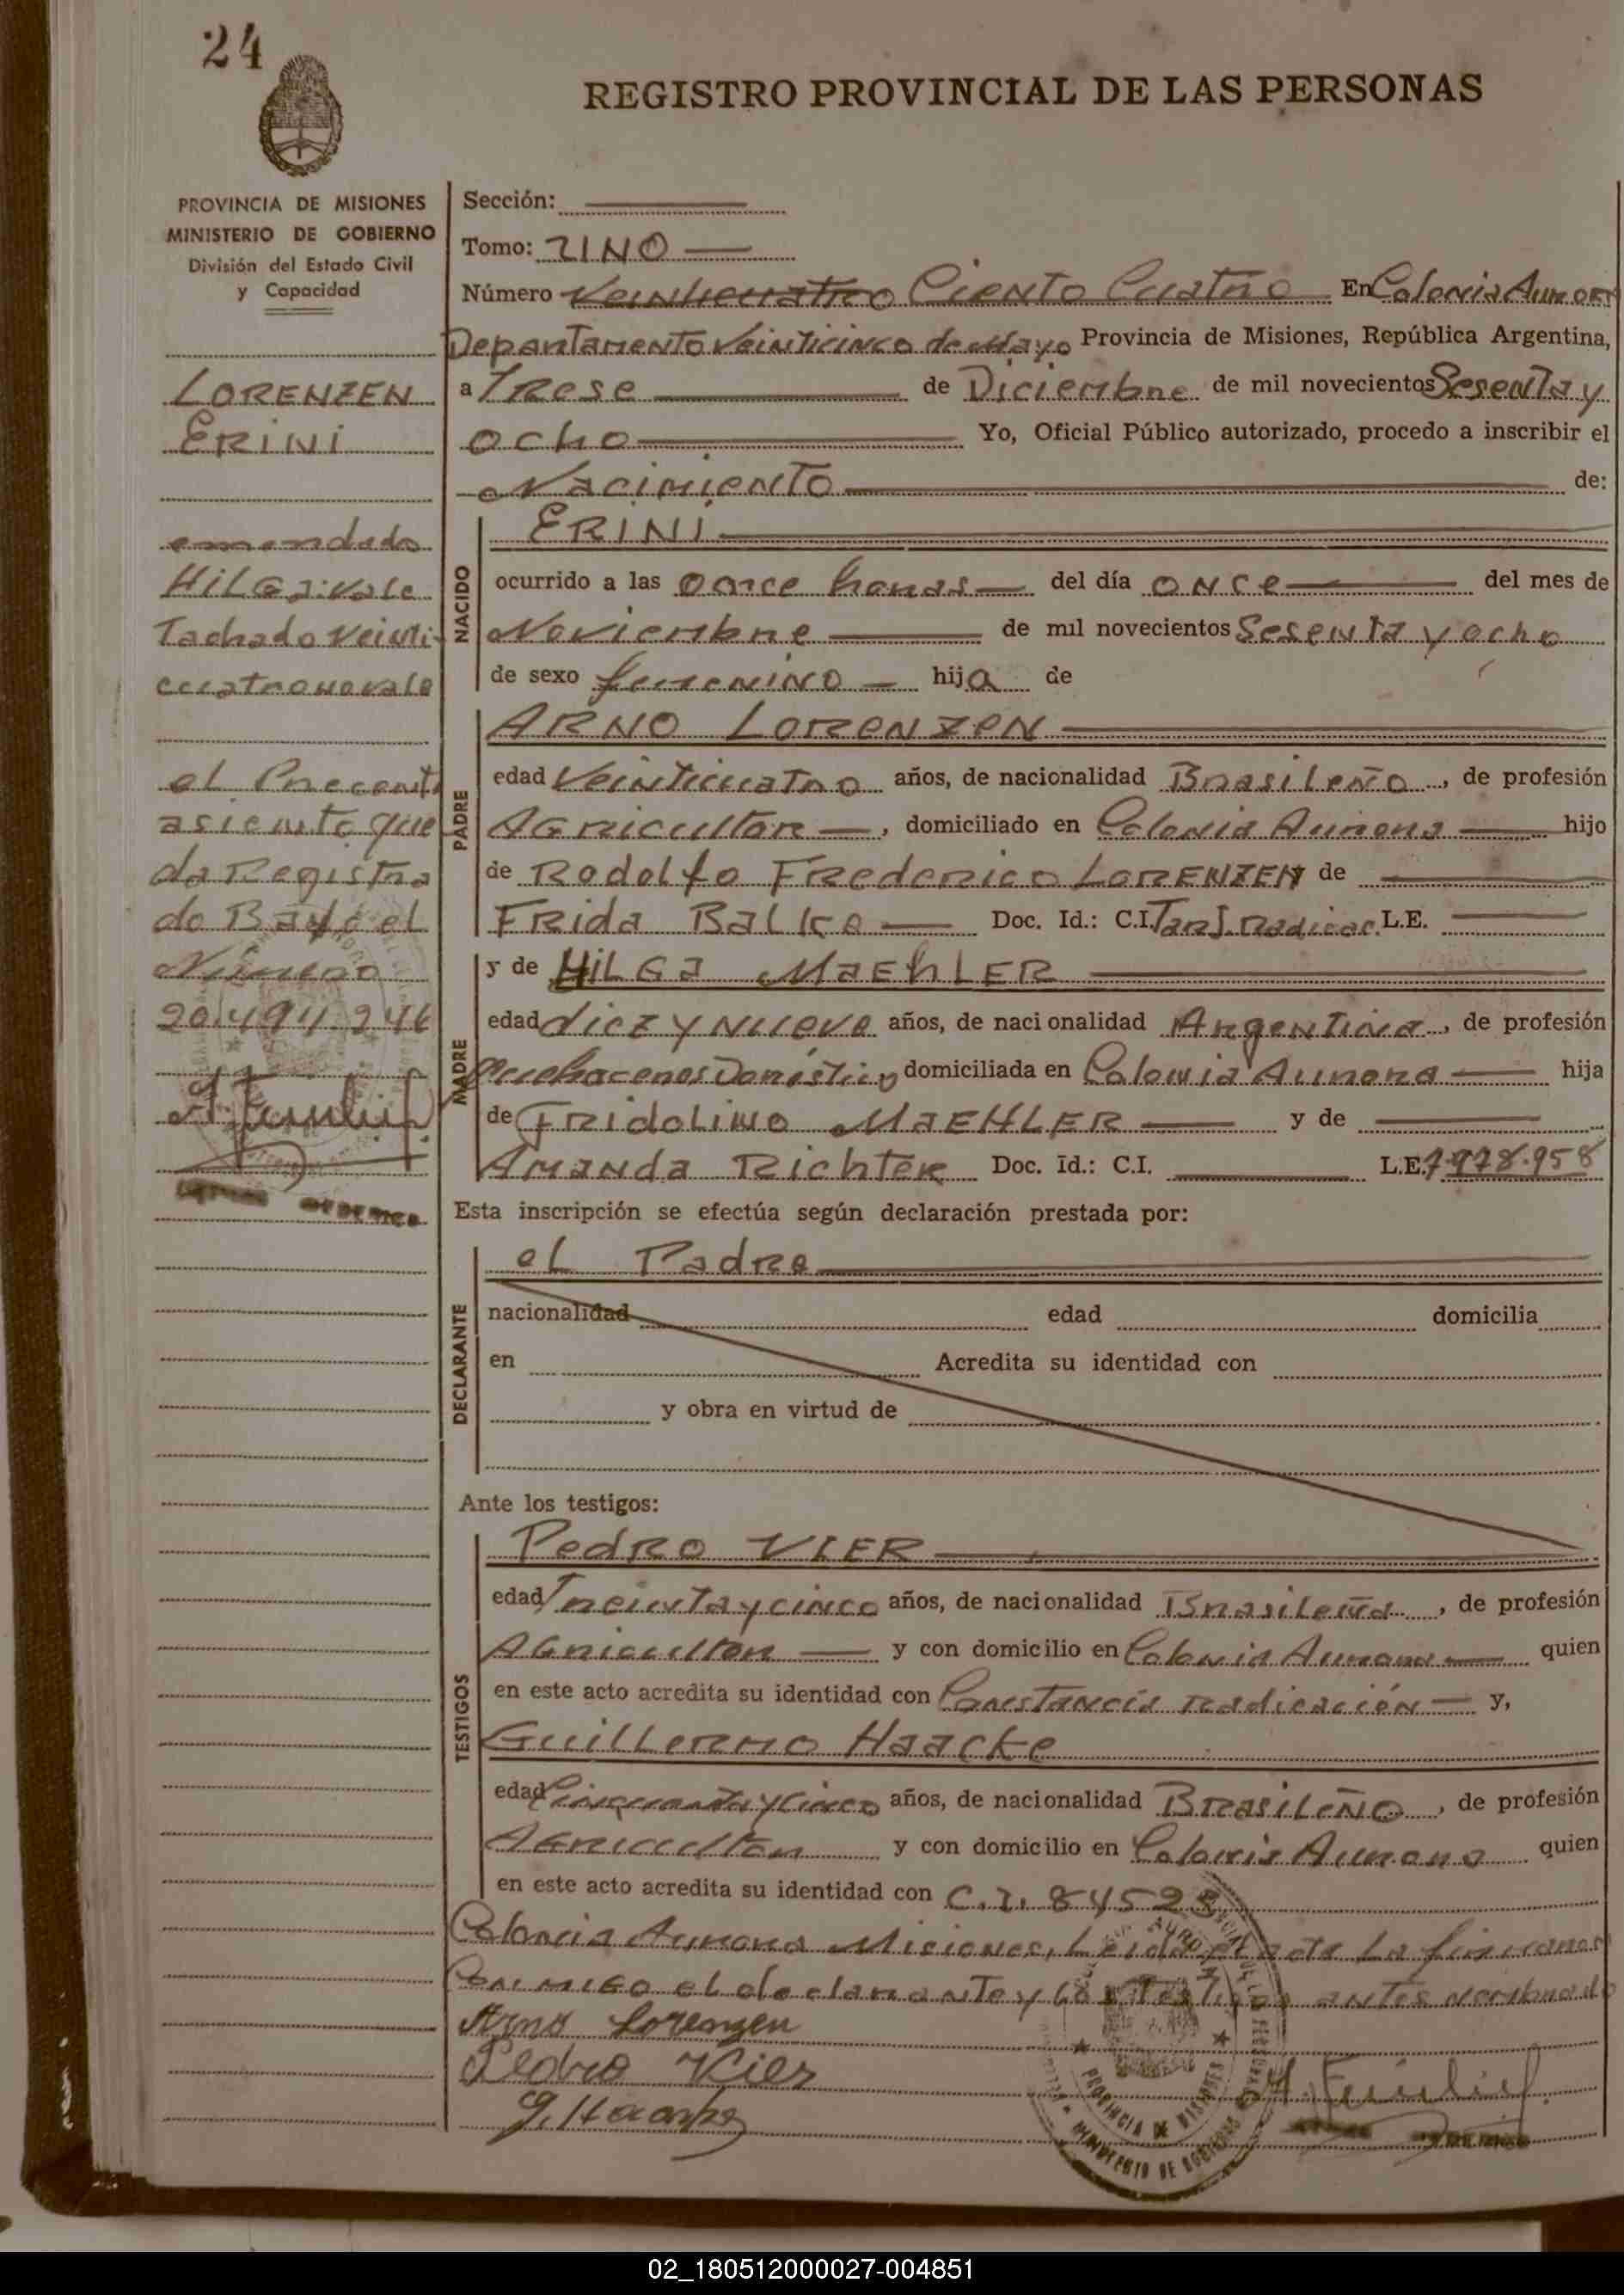 24
REGISTRO PROVINCIAL DE LAS PERSONAS
PROVINCIA DE MISIONES
MINISTERIO DE GOBIERNO
División del Estado Civil
y Capacidad
LORENZEN
ERINI
emendado
HiLGa: Vale
Tachado Veinti-
cuatro no vale
el Precente
asiento que
da Registra
do Bajo el
Número
20.494.246
Sección:
Tomo: UNO
Número Veinticuatro Ciento Cuatro En Colonia Auror
Departamento Veinticinco de Mayo Provincia de Misiones, República Argentina,
a Trese de Diciembre de mil novecientos Sesenta y
ocho Yo, Oficial Público autorizado, procedo a inscribir el
Nacimiento de:
NACIDO
ERINI
ocurrido a las once horas del día once del mes de
Noviembre de mil novecientos Sesenta y ocho
de sexo femenino hija de
PADRE
ARNO LORENZEN
edad Veinticuatro años, de nacionalidad Brasileño, de profesión
Agricultor, domiciliado en Colonia Aurora hijo
de Rodolfo Frederico LORENZEN de
Frida Balko Doc. Id.: C.I. Tarj. Radicac. L.E.
MADRE
y de HiLGa MaehLER
edad diez y nueve años, de naci onalidad Argentina, de profesión
Quehaceres Doméstico domiciliada en Colonia Aurora hija
de Fridolino MaEHLER y de
Amanda Richter Doc. Id.: C.I. L.E. 7.978.958
Esta inscripción se efectúa según declaración prestada por:
DECLARANTE
el Padre
nacionalidad edad domicilia
en Acredita su identidad con
y obra en virtud de
Ante los testigos:
TESTIGOS
Pedro VIER
edad Treinta y cinco años, de nacionalidad Brasileña, de profesión
Agricultor y con domicilio en Colonia Aurora quien
en este acto acredita su identidad con Constancia radicación y,
Guillermo Haacke
edad Cinquenta y Cinco años, de nacionalidad Brasileño, de profesión
Agricultor y con domicilio en Colonia Aurora quien
en este acto acredita su identidad con C.I. 84523
Colonia Aurora Misiones, Leida el acta La firmaron
Conmigo el declarante y los Testigos antes
Arno Lorenzen
Pedro Vier
G. Haacke
PROVINCIA DE MISIONES
02_180512000027-004851